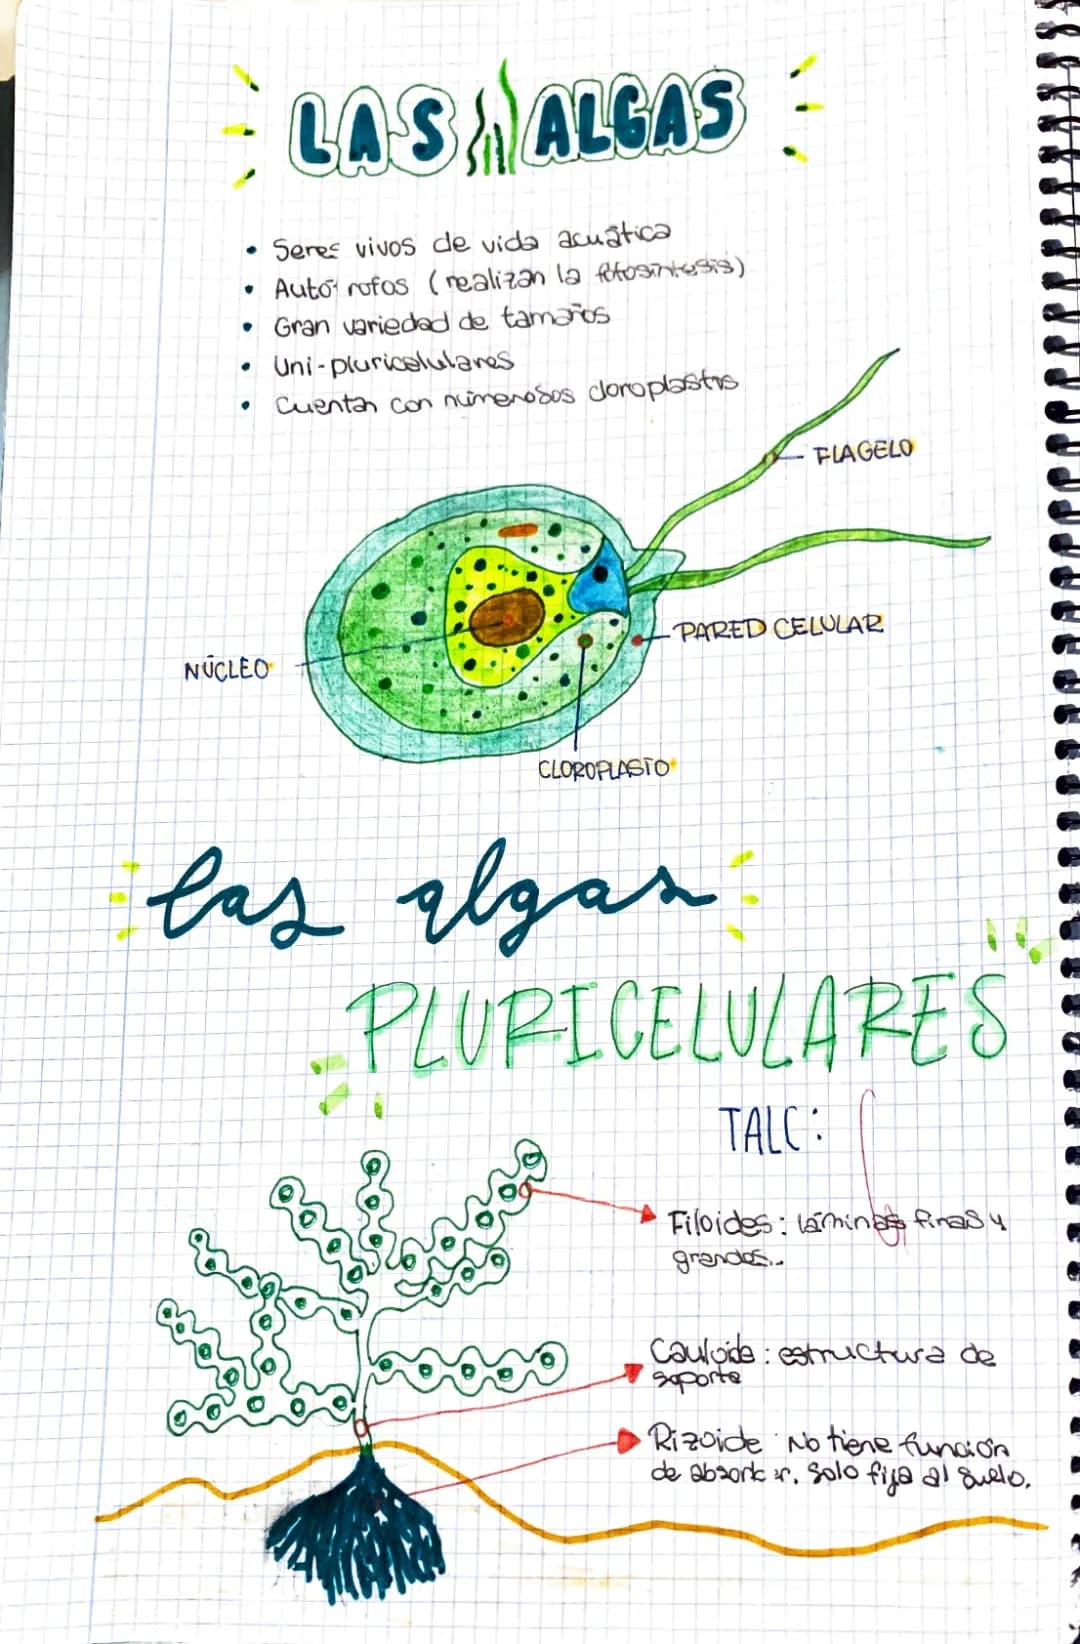 LAS ALGAS
• Seres vivos de vida acuática
• Autótrofos (realizan la fotosíntesis)
• Gran variedad de tamaños
• Uni-pluricelulares
• Cuentan con numerosos cloroplastos
FLAGELO
PARED CELULAR
NÚCLEO
CLOROPLASTO
las algas
PLURICELULARES
TALC:
Filoides: láminas finas y
grandes..
Cauloide: estructura de
soporte
Rizoide No tiene función
de absorber, solo fija al suelo.